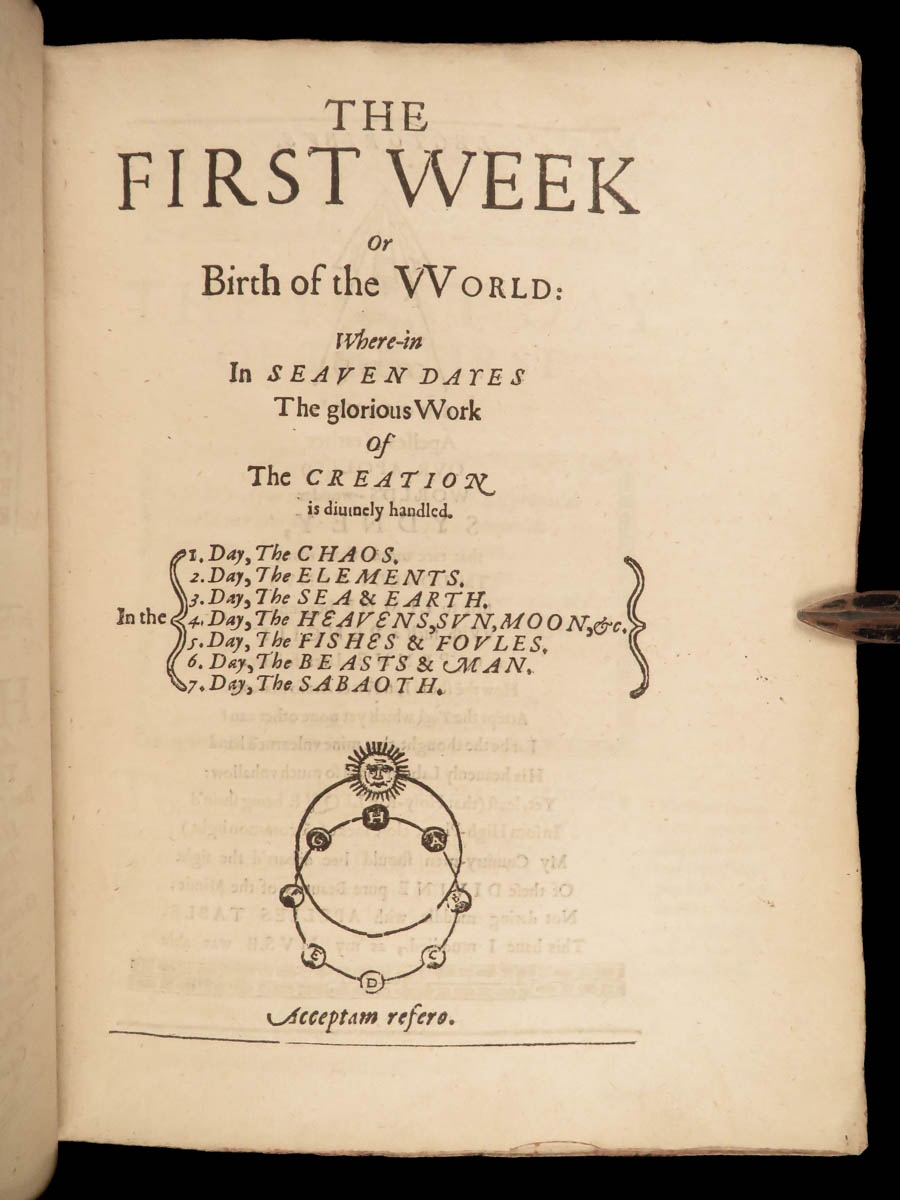 THE
FIRST WEEK
Or
Birth of the VVORLD:
Where-in
In SEAVEN DAYES
The glorious Work
Of
The CREATION
is diuinely handled.
1. Day, The CHAOS.
2. Day, The ELEMENTS.
3. Day, The SEA & EARTH.
In the 4. Day, The HEAVENS, SVN, MOON, &c.
5. Day, The FISHES & FOVLES.
6. Day, The BEASTS & MAN.
7. Day, The SABAOTH.
H
G A
B
E C
D
Acceptam refero.